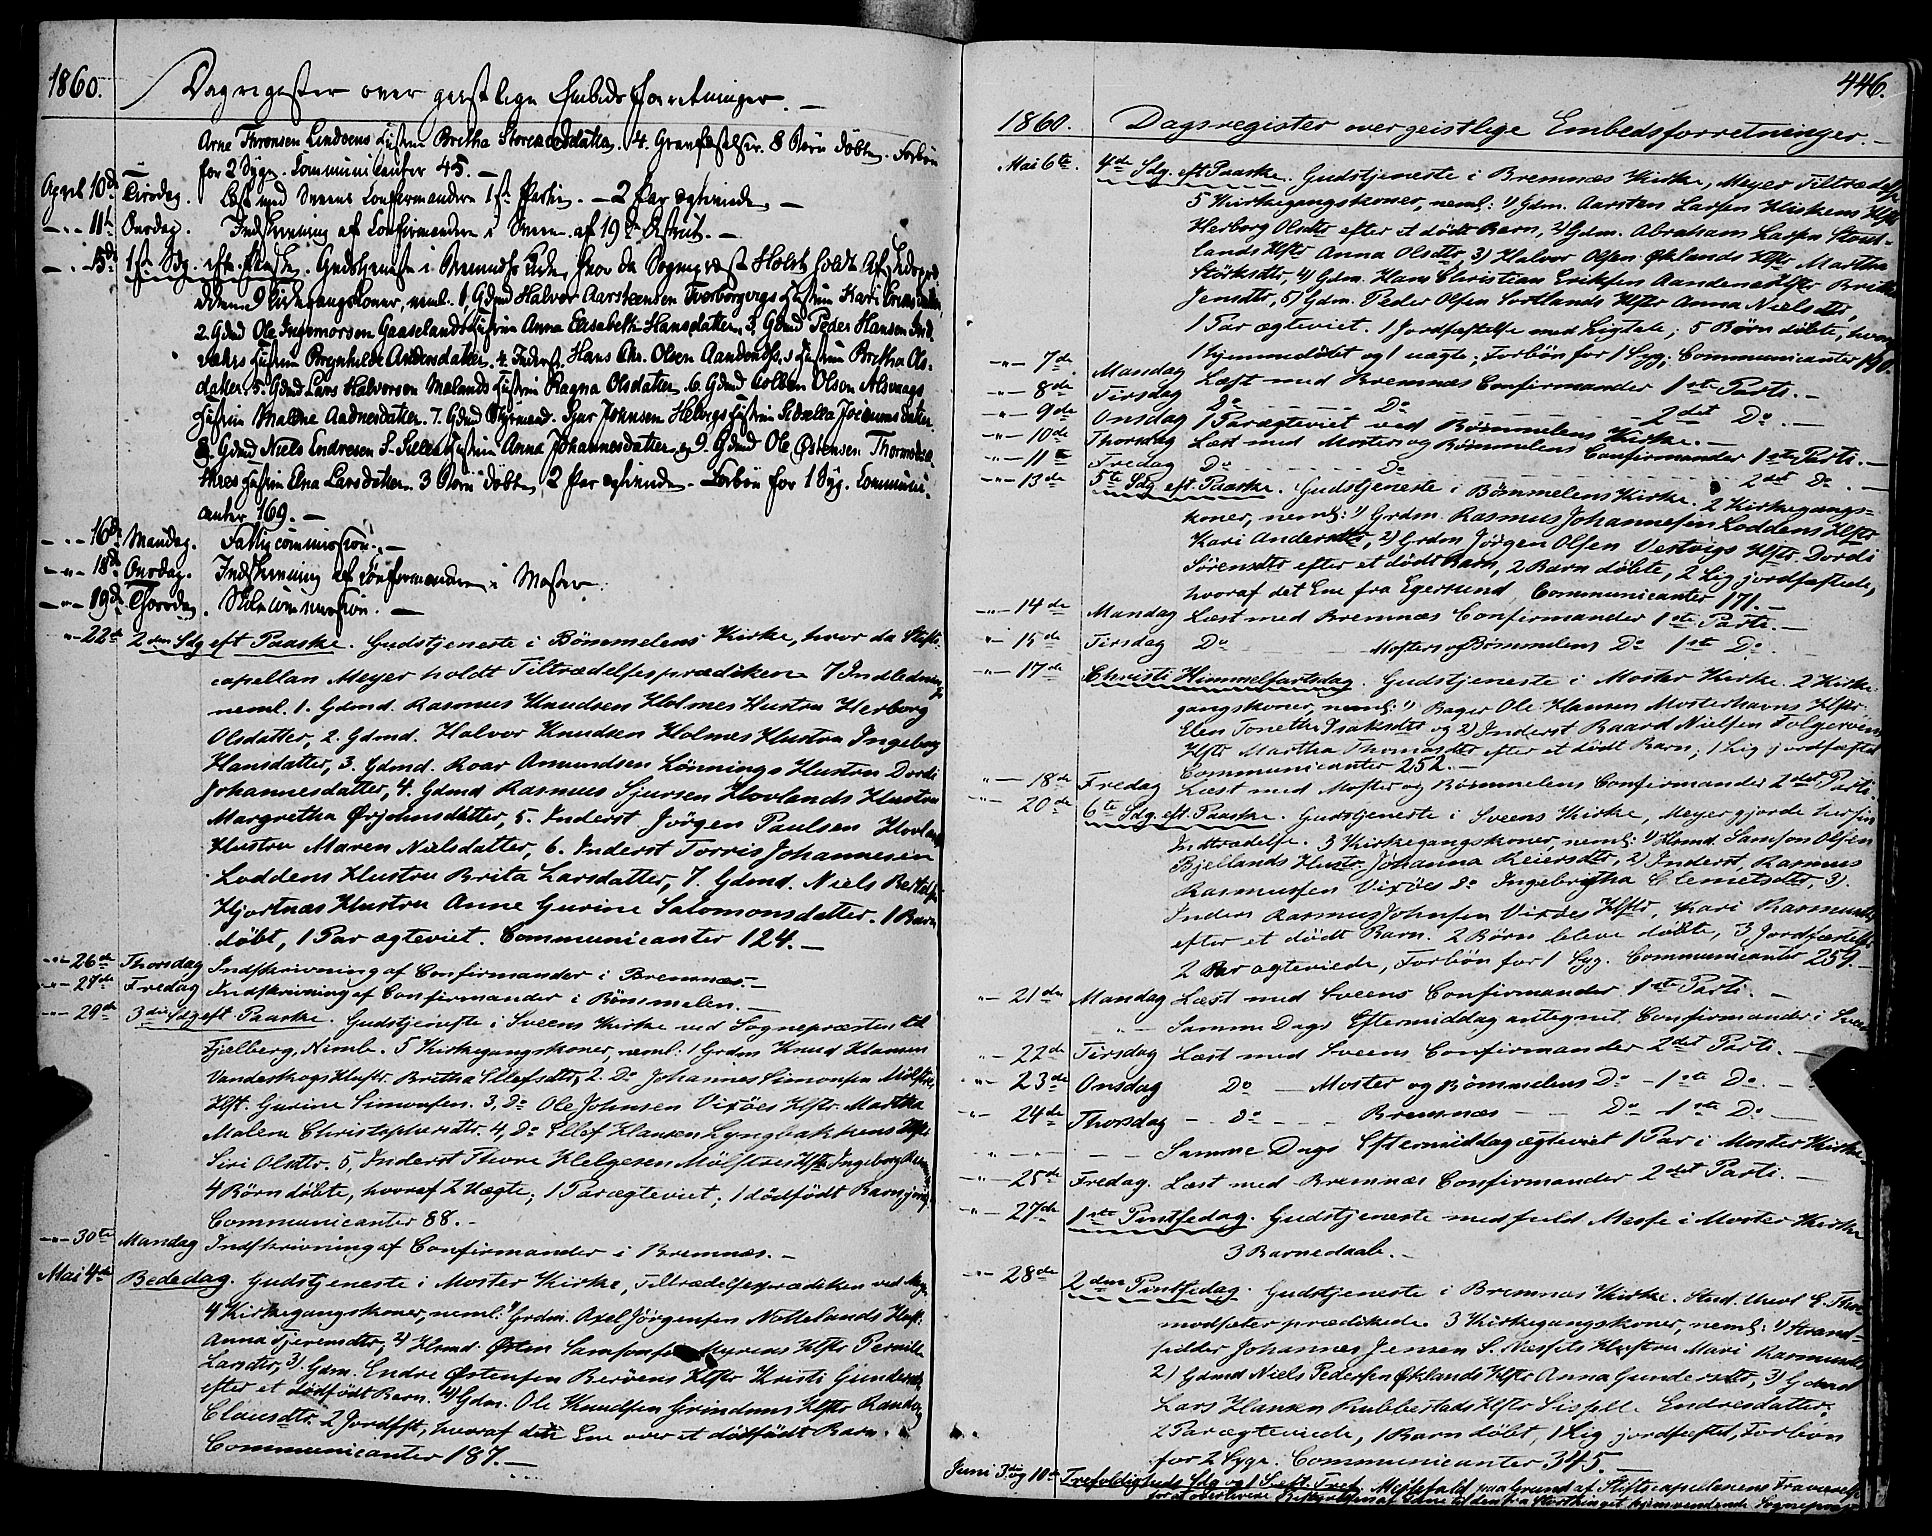 1860. Dagregister over geistlige Embedsforretninger. —
Arne Thronsen Lindøens Hustru Bretha Storeadsdatter. 4. Gravfæstelser. 8 Børn döbte. Forbön
for 2 Syge. Communicanter 45. —
April 10de Tirsdag. Læst med Sveens Confirmander 1ste Parti. — 2 Par ægteviede —
— 11te Onsdag. Indskrivning af Confirmander i Sveen af 19de Distrikt. —
— 15de 1ste Sdg. eft. Paaske. Gudstjeneste i Bremnæs Kirke, hvor da Sogneprest Holst holdt Afskedspræ-
diken 9 Kirkegangskoner, neml. 1. Gdmd Halvor Aarstensen Hustru Kari
2. Gdmd Ole Ingemorsen Gaaselands Hustru Anna Elisabeth Hansdatter, 3. Gdmd Peder Hansen Ind-
værs Hustru Brynhilde Andersdatter. 4. Inderst Hans Chr. Olsen Hustru Bretha Ols-
datter. 5. Gdmd Lars Halvorson Mælands Hustru Ragna Olsdatter. 6. Gdmd Colben Olsen Alsvaags
Hustru Malene Aadnesdatter. 7. Gdmd Styrmand Hustru
8. Gdmd Niels Endresen S. Hustru Anna Johannesdatter og 9. Gdmd Ole Østensen
Hustru Elna Larsdatter. 3 Børn döbte, 2 Par ægteviede. — Forbön for 1 Syg. Communi-
canter 169. —
— 16de Mandag. Fattigcommission. —
— 18de Onsdag. Indskrivning af Confirmander i Moster.
— 19de Thorsdag. Skolecommission. —
— 22de 2den Sdg eft Paaske. Gudstjeneste i Bömmelens Kirke, hvor da Stifts-
capellan Meyer holdt Tiltrædelsesprædiken 7 Indledning
neml. 1. Gdmd. Rasmus Knudsen Holmes Hustru Herborg
Olsdatter, 2. Gdmd. Halvor Knudsen Holmes Hustru Ingeborg
Hansdatter, 3. Gdmd. Roar Amundsen Lönnings Hustru Dordi
Johannesdatter, 4. Gdmd Rasmus Sjursen Hovlands Hustru
Margretha Ørjohnsdatter, 5. Inderst Jörgen Paulsen Hovlands
Hustru Maren Nielsdatter, 6. Inderst Torris Johannesen
Loddens Hustru Brita Larsdatter, 7. Gdmd. Niels
Hjortnæs Hustru Anne Gurine Salomonsdatter. 1 Barn
döbt, 1 Par ægteviet. Communicanter 124. —
— 26de Thorsdag Indskrivning af Confirmander i Bremnæs. —
— 27de Fredag Indskrivning af Confirmander i Bömmelen. —
— 29de 3die Sdg eft Paaske. Gudstjeneste i Sveens Kirke ved Sognepræsten til
Fjelberg, 5 Kirkegangskoner, neml: 1 Grdm Knud Hansen
Vandeskogs Hustr. Britha Ellefsdtr, 2. Do Johannes Simonsen
Hust. Gurine Simonsen. 3, Do Ole Johnsen Vixöes Hstr. Martha
Malene Christophersdtr. 4, Do Ellef Hansen Lyngbakkens Hstr
Siri Olsdtr. 5, Inderst Thore Helgesen Mölstres Hstr Ingeborg
4 Börn döbte, hvoraf 2 Uægte; 1 Par ægteviet; 1 dödfödt Barn
Communicanter 88. —
— 30te Mandag Indskrivning af Confirmander i Bremnæs. —
Mai 4de Bededag. Gudstjeneste i Moster Kirke, Tiltrædelsesprædiken ved
4 Kirkegangskoner, neml: 1) Grdm. Axel Jörgensen Nottelands Hust.
Anna 2) Hmd. Østen Samsonsen Myrens Hstr Pernille
Larsdtr, 3) Gdm. Endre Østensen Bervens Hstr Kristi
efter et dödfödt Barn. 4) Gdm. Ole Knudsen Grindems Hstr Randvei
Clausdtr. 2 Jordfst, hvoraf det Ene over et dödfödt Barn.
Communicanter 187. —
446.
1860. Dagsregister over geistlige Embedsforretninger. —
Mai 6te. 4de Sdg. eft Paaske. Gudstjeneste i Bremnæs Kirke, Meyer Tiltrædelse
5 Kirkegangskoner, neml: 1) Gdm. Aarsten Larsen Hiskens Hstr
Herborg Olsdtr efter et dödt Barn, 2) Gdm. Abraham Larsen
lands Hstr Anna Olsdtr, 3) Halvor Olsen Øklands Hstr Martha
Störksdtr, 4) Gdm. Hans Christian Eriksen Hstr Britha
Jensdtr, 5) Gdm. Peder Olsen Hstr Anna Nielsdtr,
1 Par ægteviet. 1 Jordfæstelse med Ligtale; 5 Börn döbte, hvoraf
1 hjemmedöbt og 1 uægte; Forbön for 1 Syg; Communicanter 190.
— 7de Mandag Læst med Bremnæs Confirmander 1ste Parti. —
— 8de Tirsdag Do — Do — 2det Do. —
— 9de Onsdag 1 Par ægteviet ved Bömmelens Kirke. —
— 10de Thorsdag Læst med Moster og Bömmelens Confirmander 1ste Parti. —
— 11te Fredag Do Do 2det Do. —
— 13de 5te Sdg eft. Paaske. Gudstjeneste i Bömmelens Kirke. 2 Kirkegangs-
koner, neml: 1) Grdm. Rasmus Johannesen Loddens Hstr
Kari Andersdtr, 2) Grdm Jörgen Olsen Vestvigs Hstr. Dordi
Sörensdtr efter et dödt Barn, 2 Barn döbte, 2 Lig jordfæstede,
hvoraf det Ene fra Egersund, Communicanter 171. —
— 14de Mandag Læst med Bremnæs Confirmander 1ste Parti. —
— 15de Tirsdag Do Moster og Bömmelens Do 1ste Do. —
— 17de Christi Himmelfartsdag. Gudstjeneste i Moster Kirke. 2 Kirke-
gangskoner, neml: 1) Bager Ole Hansen Mosterhavns Hstr.
Elen Tonetha Isaksdtr og 2) Inderst Baard Nielsen Folgeröens
Hstr Martha Thomasdtr efter et dödt Barn; 1 Lig jordfæstet
Communicanter 252. —
— 18de Fredag Læst med Moster og Bömmelens Confirmander 2det Parti.
— 20de 6te Sdg. eft. Paaske. Gudstjeneste i Sveens Kirke, Meyer gjorde her sin
Indtrædelse. 3 Kirkegangskoner, neml: 1) Hsmd. Samson Olsen
Bjellands Hustr. Johanna Reiersdtr, 2) Inderst, Rasmus
Rasmussen Vixöes Do Ingebregtha Clemetsdtr, 3)
Inders Rasmus Johnsen Vixöes Hstr, Kari Rasmusdtr
efter et dödt Barn. 2 Börn bleve döbte, 3 Jordfæstelser
2 Par ægteviede, Forbön for 1 Syg. Communicanter 259. —
— 21de Mandag Læst med Sveens Confirmander 1ste Parti. —
— Samme Dags Eftermiddag antegnet Confirmander i Sveen
— 22de Tirsdag Læst med Sveens Confirmander 2det Parti. —
— 23de Onsdag Do — Moster og Bömmelens Do — 1ste Do. —
— 24de Thorsdag — Do — Bremnæs — Do — 1ste Do —
— Samme Dags Eftermiddag ægteviet 1 Par i Moster Kirke.
— 25de Fredag. Læst med Bremnæs Confirmander 2det Parti. —
— 27de 1ste Pintsedag. Gudstjeneste med fuld Messe i Moster Kirke
3 Barnedaab. —
— 28de 2den Pintsedag. Gudstjeneste i Bremnæs Kirke. Stud. theol E. Thor-
modsæter prædikede. 3 Kirkegangskoner, neml: 1) Strand-
sidder Johannes Jensen S. Næsses Hustru Mari Rasmusdtr
2) Gdmd Niels Pedersen Øklands Hstr Anna Gundersdtr, 3) Gdmd
Lars Hansen Rubbestads Hstr Sisselle Endresdatter.
2 Par ægteviede, 1 Barn döbt, 1 Lig jordfæstet, Forbön
for 2 Syge. Communicanter 345. —
Juni 3die og 10de Trefoldigheds Sdg og 1 S. eft. Tref. Messefald paa Grund af Stiftscapellanens Fraværelse
for at overlevere til den fra Storthinget hjemvendende Sognepræst